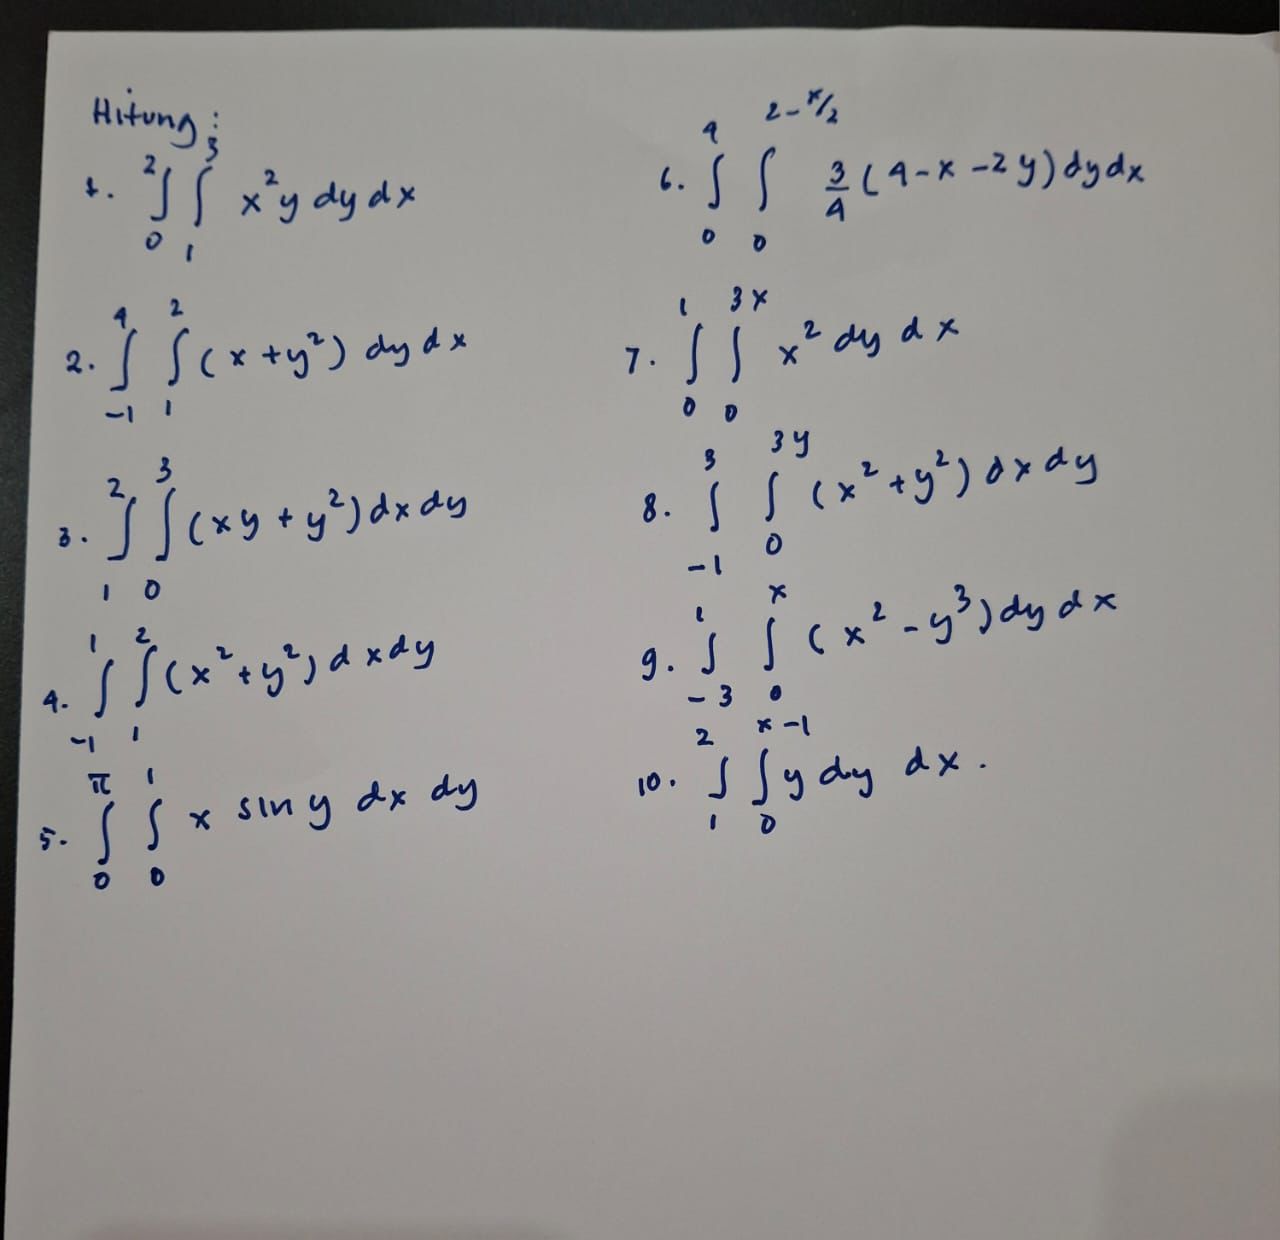 Hitung:
1. ∫₀² ∫₁³ x²y dy dx
2. ∫₋₁⁴ ∫₁² (x + y²) dy dx
3. ∫₁² ∫₀³ (xy + y²) dx dy
4. ∫₋₁¹ ∫₁² (x² + y²) dx dy
5. ∫₀^π ∫₀¹ x sin y dx dy
6. ∫₀⁴ ∫₀^(2-x/2) 3/4 (4 - x - 2y) dy dx
7. ∫₀¹ ∫₀^(3x) x² dy dx
8. ∫₋₁³ ∫₀^(3y) (x² + y²) dx dy
9. ∫₋₃¹ ∫₀^x (x² - y³) dy dx
10. ∫₁² ∫₀^(x-1) y dy dx.